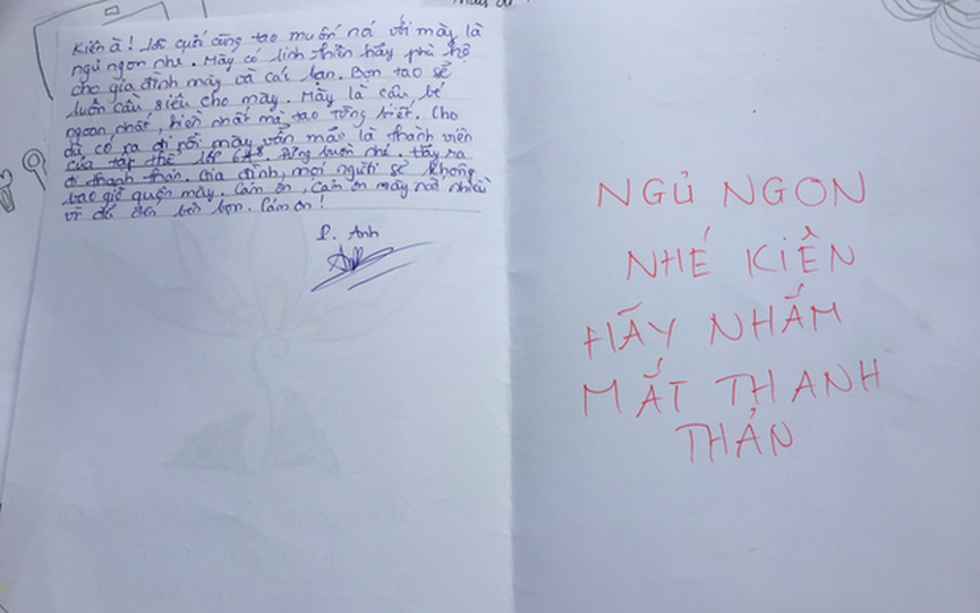 Kiên à! Lời cuối cùng tao muốn nói với mày là
ngủ ngon nhé. Mày có linh thiên hãy phù hộ
cho gia đình mày và các bạn. Bọn tao sẽ
luôn cầu siêu cho mày. Mày là cậu bé
ngoan nhất, hiền nhất mà tao từng biết. Cho
dù có ra đi rồi mày vẫn mãi là thành viên
của tập thể lớp 6A8. Đừng buồn nhé. Hãy ra
đi thanh thản. Gia đình, mọi người sẽ không
bao giờ quên mày. Cảm ơn, cảm ơn mày rất nhiều
vì đã đến bên bọn. Cảm ơn!
P. Anh
Anh
NGỦ NGON
NHÉ KIÊN
HÃY NHẮM
MẮT THANH
THẢN